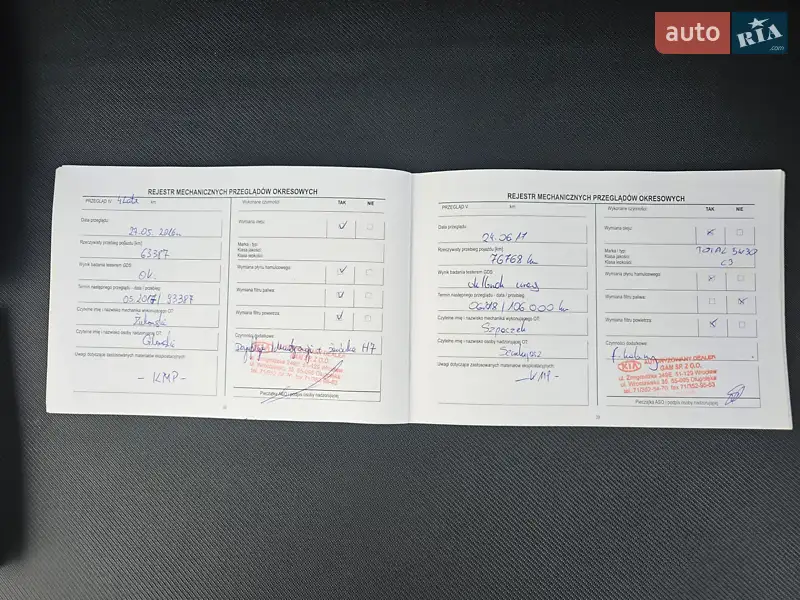 auto RIA.com
REJESTR MECHANICZNYCH PRZEGLĄDÓW OKRESOWYCH
PRZEGLĄD IV 4 lata km
Data przeglądu
27.05.2016r.
Rzeczywisty przebieg pojazdu [km]
63387
Wynik badania testerem GDS
OK.
Termin następnego przeglądu - data / przebieg
05.2017/ 93387
Czytelne imię i nazwisko mechanika wykonującego OT:
Czytelne imię i nazwisko osoby nadzorującej OT:
Uwagi dotyczące zastosowanych materiałów eksploatacyjnych
- KMP -
Wykonane czynności TAK NIE
Wymiana oleju
Marka / typ:
Klasa jakości:
Klasa lepkości:
Wymiana płynu hamulcowego
Wymiana filtru paliwa:
Wymiana filtru powietrza:
Czynności dodatkowe:
H7
Pieczątka ASO i podpis osoby nadzorującej
REJESTR MECHANICZNYCH PRZEGLĄDÓW OKRESOWYCH
PRZEGLĄD V km
Data przeglądu
24.06.17
Rzeczywisty przebieg pojazdu [km]
76768 km
Wynik badania testerem GDS
Termin następnego przeglądu - data / przebieg
06.2018 / 106 000 km
Czytelne imię i nazwisko mechanika wykonującego OT:
Szpaczek
Czytelne imię i nazwisko osoby nadzorującej OT:
Uwagi dotyczące zastosowanych materiałów eksploatacyjnych
- KMP -
Wykonane czynności: TAK NIE
Wymiana oleju
Marka / typ: TOTAL 5W30
Klasa jakości: C3
Klasa lepkości:
Wymiana płynu hamulcowego
Wymiana filtru paliwa:
Wymiana filtru powietrza:
Czynności dodatkowe:
f. kabiny
KIA AUTORYZOWANY DEALER
GAM SP. Z O.O.
Pieczątka ASO i podpis osoby nadzorującej